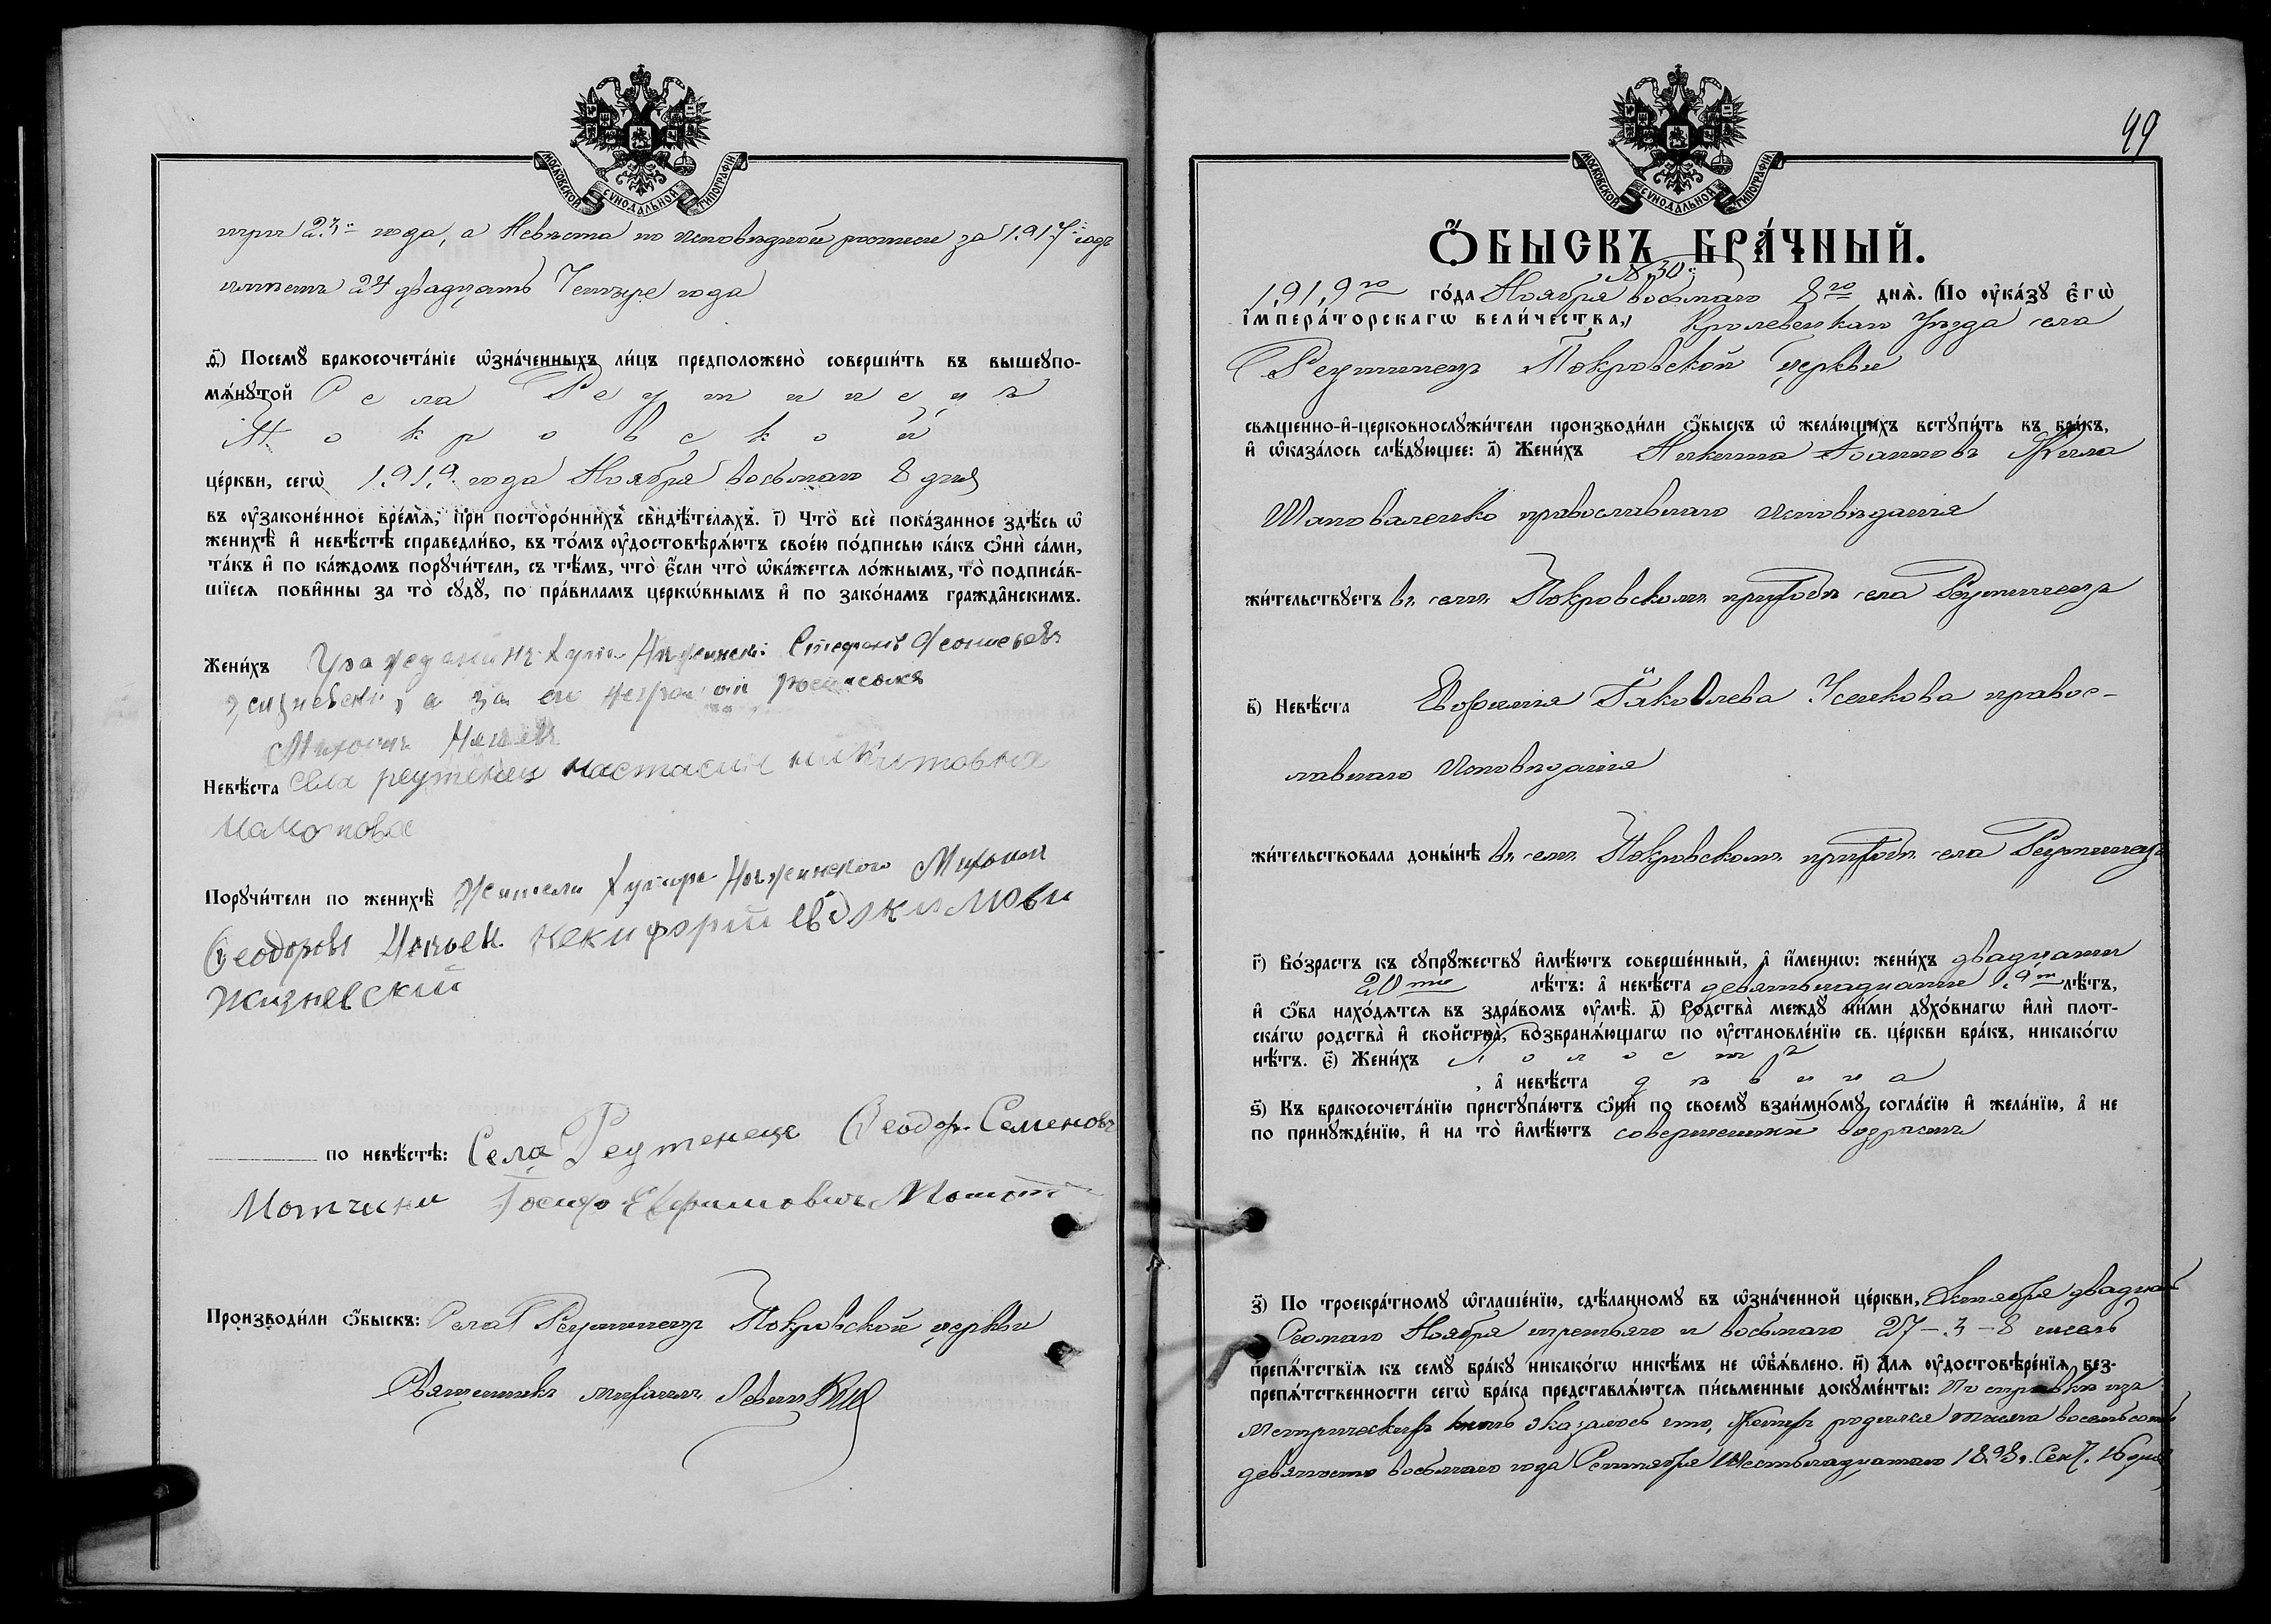 МОСКОВСКОЙ СѴНОДАЛЬНОЙ ТИПОГРАФІИ
три 23 года, а Невѣста по исповѣдной росписи за 1917 годъ
имѣетъ 24 двадцать Четыре года
д҃) Посемꙋ бракосочета́нїе ѡ҆зна́ченныхъ ли́цъ предположено̀ соверши́ть въ вышеупо-
мѧ́нꙋтой Села Реутинецъ
Покровской
це́ркви, сегѡ̀ 1919 года Ноября восьмаго 8 дня
въ ᲂу҆зако́ненное вре́мѧ, при посторо́ннихъ свидѣ́телѧхъ. і҃) Что̀ всѐ пока́занное здѣ́сь ѡ҆
женихѣ̀ и҆ невѣ́стѣ справедли́во, въ то́мъ ᲂу҆достовѣрѧ́ютъ свое́ю по́дписью ка́къ ѻ҆нѝ са́ми,
та́къ и҆ по ка́ждомъ порꙋчи́тели, съ тѣ́мъ, что̀ є҆́сли что̀ ѡ҆ка́жетсѧ ло́жнымъ, то̀ подписа́в-
шїесѧ пови́нны за то̀ сꙋдꙋ̀, по пра́виламъ церко́внымъ и҆ по зако́намъ гражда́нскимъ.
Жени́хъ Гражданинъ Стефанъ Леонтьевъ
а за его неграмотн росписался
Михаилъ
Невѣ́ста Села реутенец настасия никитовна
мамонова
Порꙋчи́тели по женихѣ̀ Жители Хутора Михаил
Ѳеодоровъ Никифорій Евдокимови
Жизневский
по невѣ́стѣ: Села Реутенецъ Ѳеодор Семеновъ
Іосифъ Ефимовичъ
Производи́ли ѻ҆́быскъ: Села Реутинецъ Покровской церкви
Священникъ Михаилъ
49
МОСКОВСКОЙ СѴНОДАЛЬНОЙ ТИПОГРАФІИ
Ѻ҆́БЫСКЪ БРА́ЧНЫЙ.
№ 30
1919го го́да Ноября восьмаго 8го днѧ̀. (По ᲂу҆ка́зꙋ є҆гѡ̀
и҆мпера́торскагѡ вели́чества,) Кролевецкаго Уѣзда села
Реутинецъ Покровской церкви
свѧще́нно-и҆-церковнослꙋжи́тели производи́ли ѻ҆́быскъ ѡ҆ жела́ющихъ встꙋпи́ть въ бра́къ,
и҆ ѡ҆каза́лось слѣ́дꙋющее: а҃) Жени́хъ Никита Іоанновъ
Шаповаленко православнаго исповѣданія
жи́тельствꙋетъ въ семъ Покровскомъ приходѣ села Реутинецъ
в҃) Невѣ́ста Евфимія Іаковлева Усенкова правос-
лавнаго Исповѣданія
жи́тельствовала доны́нѣ въ семъ Покровскомъ приходѣ села Реутинецъ
г҃) Во́зрастъ къ сꙋпрꙋ́жествꙋ и҆мѣ́ютъ соверше́нный, а҆ и҆́меннѡ: жени́хъ двадцати
20ти лѣ́тъ: а҆ невѣ́ста девятьнадцати 19ти лѣ́тъ,
и҆ ѻ҆́ба нахо́дѧтсѧ въ здра́вомъ ᲂу҆мѣ̀. д҃) Родства̀ междꙋ̀ ни́ми дꙋхо́внагѡ и҆лѝ плот-
ска́гѡ родства̀ и҆ свойства̀, возбранѧ́ющагѡ по ᲂу҆становле́нїю св. це́ркви бра́къ, никако́гѡ
нѣ́тъ. є҃) Жени́хъ холостъ
, а҆ невѣ́ста дѣвица
ѕ҃) Къ бракосочета́нїю пристꙋпа́ютъ ѻ҆нѝ по своемꙋ̀ взаи́мномꙋ согла́сїю и҆ жела́нїю, а҆ не
по принꙋжде́нїю, и҆ на то̀ и҆мѣ́ютъ совершенный возрастъ
з҃) По троекра́тномꙋ ѡ҆глаше́нїю, сдѣ́ланномꙋ въ ѡ҆зна́ченной це́ркви, Октября двадцать
Седмаго Ноября третьяго и восьмаго 27 - 3 - 8 чиселъ
препѧ́тствїѧ къ семꙋ̀ бра́кꙋ никако́гѡ никѣ́мъ не ѡ҆б̾ѧ́влено. и҃) Длѧ ᲂу҆достовѣре́нїѧ без-
препѧ́тственности сегѡ̀ бра́ка представлѧ́ютсѧ пи́сьменные докꙋме́нты: По справкѣ изъ
метрическихъ книгъ оказалось что, Женихъ родился тысяча восемьсотъ
девяносто восьмаго года Сентября Шестьнадцатаго 1898 г. Сент. 16 дня